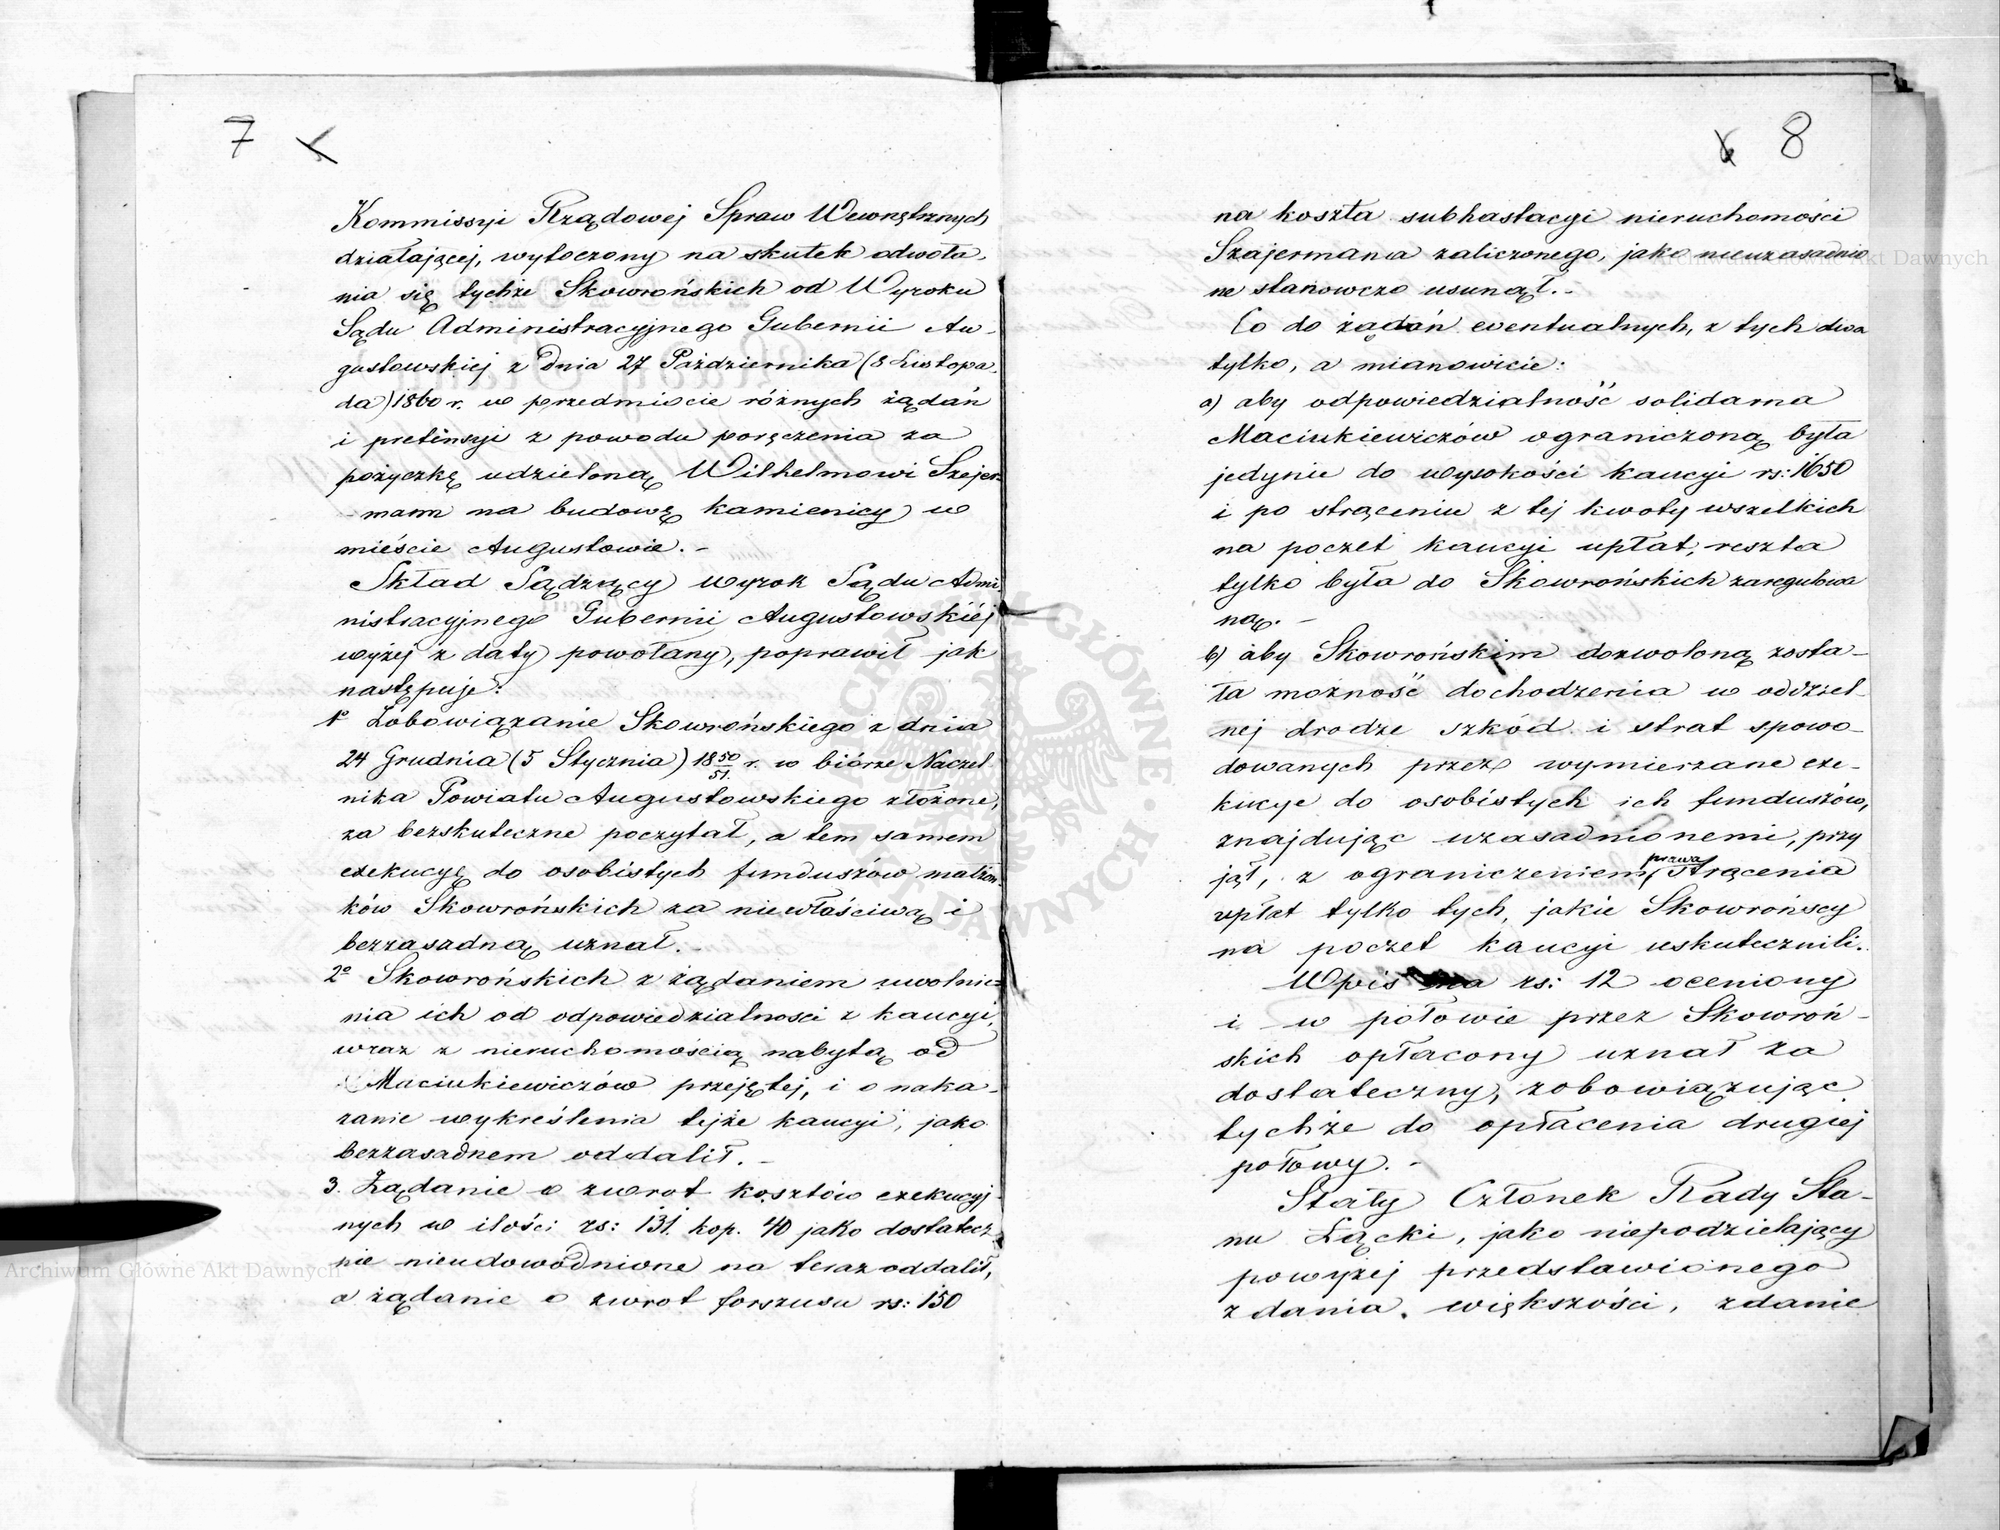 7
Kommissyi Rządowej Spraw Wewnętrznych
działającej, wytoczony na skutek odwoła-
nia się tychże Skowrońskich od Wyroku
Sądu Administracyjnego Gubernii Au-
gustowskiej z Dnia 27 Października (8 Listopa-
da) 1860 r. w przedmiocie różnych żądań
i pretensyi z powodu poręczenia za
pożyczkę udzieloną Wilhelmowi Szejer-
mann na budowę kamienicy w
mieście Augustowie. -
Skład Sądzący wyrok Sądu Admi-
nistracyjnego Gubernii Augustowskiéj
wyżej z daty powołany, poprawił jak
następuje:
1º Zobowiązanie Skowrońskiego z dnia
24 Grudnia (5 Stycznia) 1850/51. r. w biórze Naczel
nika Powiatu Augustowskiego złożone,
za bezskuteczne poczytał, a tem samem
exekucyę do osobistych funduszów małżon-
ków Skowrońskich za niewłaściwą i
bezzasadną uznał. -
2º Skowrońskich z żądaniem uwolnie-
nia ich od odpowiedzialnosci z kaucyi,
wraz z nieruchomością nabytą od
Maciukiewiczów przejętej, i o naka-
zanie wykreślenia tejże kaucyi, jako
bezzasadnem oddalił. -
3. Żądanie o zwrot kosztów exekucyj-
nych w ilości rs: 131. kop. 40 jako dostatecz-
nie nieudowodnione na teraz oddalił,
a żądanie o zwrot forszusu rs: 150
8
na koszta subhastacyi nieruchomości
Szajermana zaliczonego, jako nieuzasadnio
ne stanowczo usunął. -
Co do żądań eventualnych, z tych dwa
tylko, a mianowicie:
a) aby odpowiedzialność solidarna
Maciukiewiczów ograniczoną była
jedynie do wysokości kaucyi rs: 1650
i po strąceniu z tej kwoty wszelkich
na poczet kaucyi upłat, reszta
tylko była do Skowrońskich zaregulowa
ną. -
b) aby Skowrońskim dozwoloną zosta-
ła możność dochodzenia w oddziel-
nej drodze szkód i strat spowo-
dowanych przez wymierzane exe-
kucye do osobistych ich funduszów,
znajdując uzasadnionemi, przy
jął, z ograniczeniem prawa strącenia
upłat tylko tych, jakie Skowrońscy
na poczet kaucyi uskutecznili.
Wpis na rs: 12 oceniony
i w połowie przez Skowroń-
skich opłacony uznał za
dostateczny, zobowiązując
tychże do opłacenia drugiej
połowy. -
Stały Członek Rady Sta-
nu Łącki, jako niepodzielający
powyżej przedstawionego
zdania większości, zdanie
Archiwum Główne Akt Dawnych
Archiwum Główne Akt Dawnych